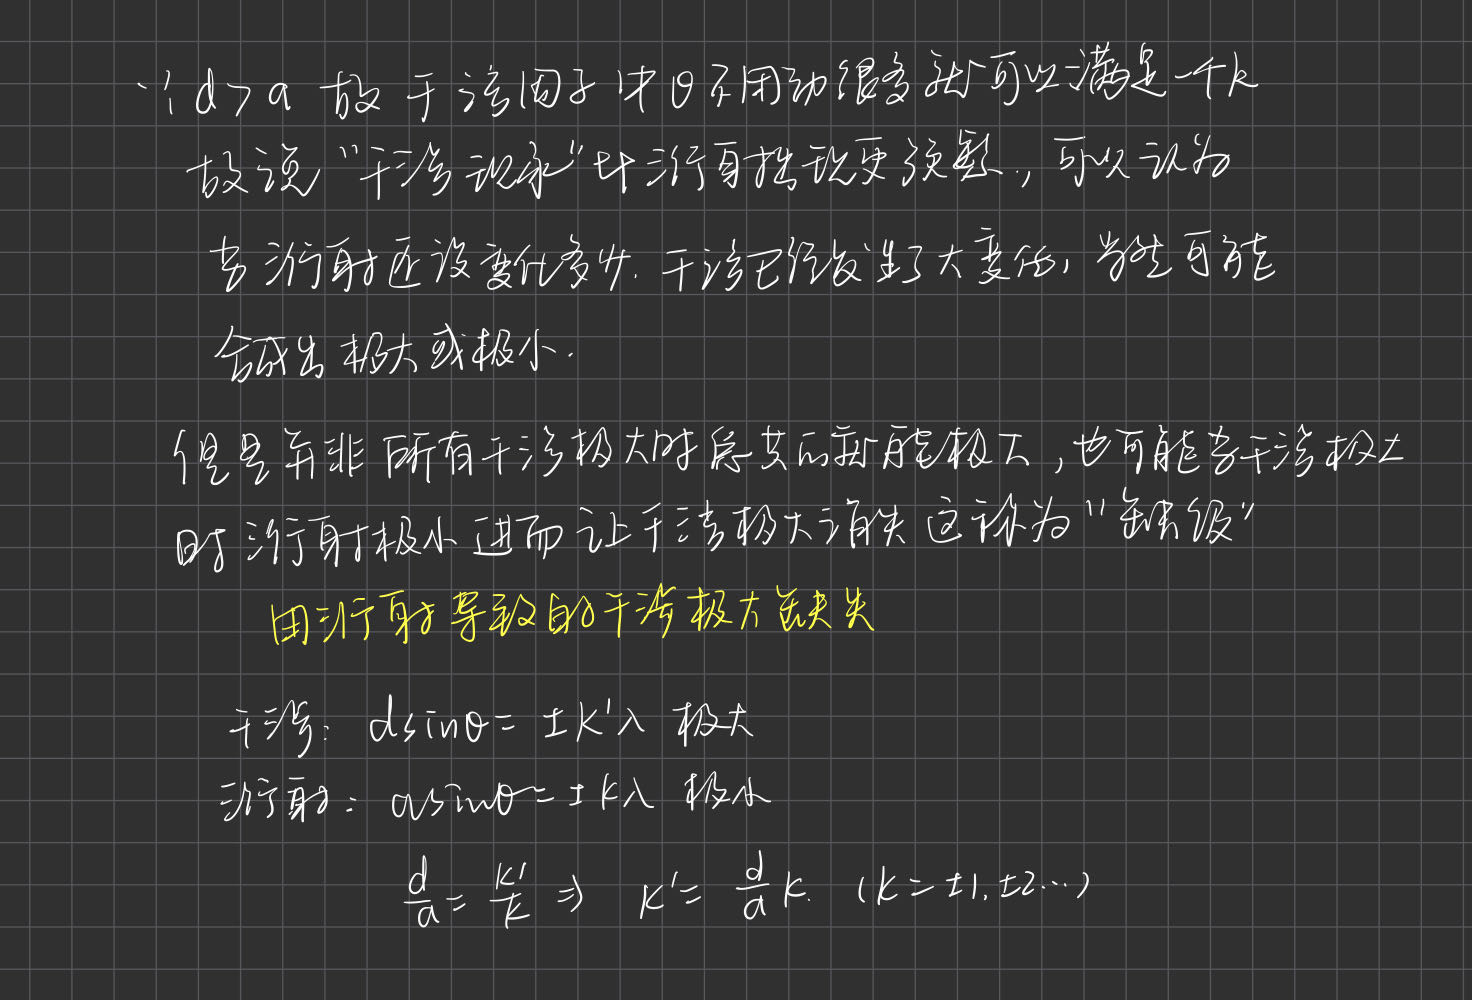 ∵ d > a 故干涉因子中θ不用动很多就可以满足一个k
故说“干涉现象”比衍射拙现更频繁，可以认为
当衍射还没变化多少. 干涉已经发生了大变化，当然可能
合成出极大或极小.
但是并非所有干涉极大时总共的就能极大，也可能当干涉极大
时衍射极小进而让干涉极大消失这称为“缺级”
由衍射导致的干涉极大缺失
干涉: dsinθ = ±k'λ 极大
衍射: asinθ = ±kλ 极小
d/a = k'/k ⇒ k' = d/a k. (k = ±1, ±2...)